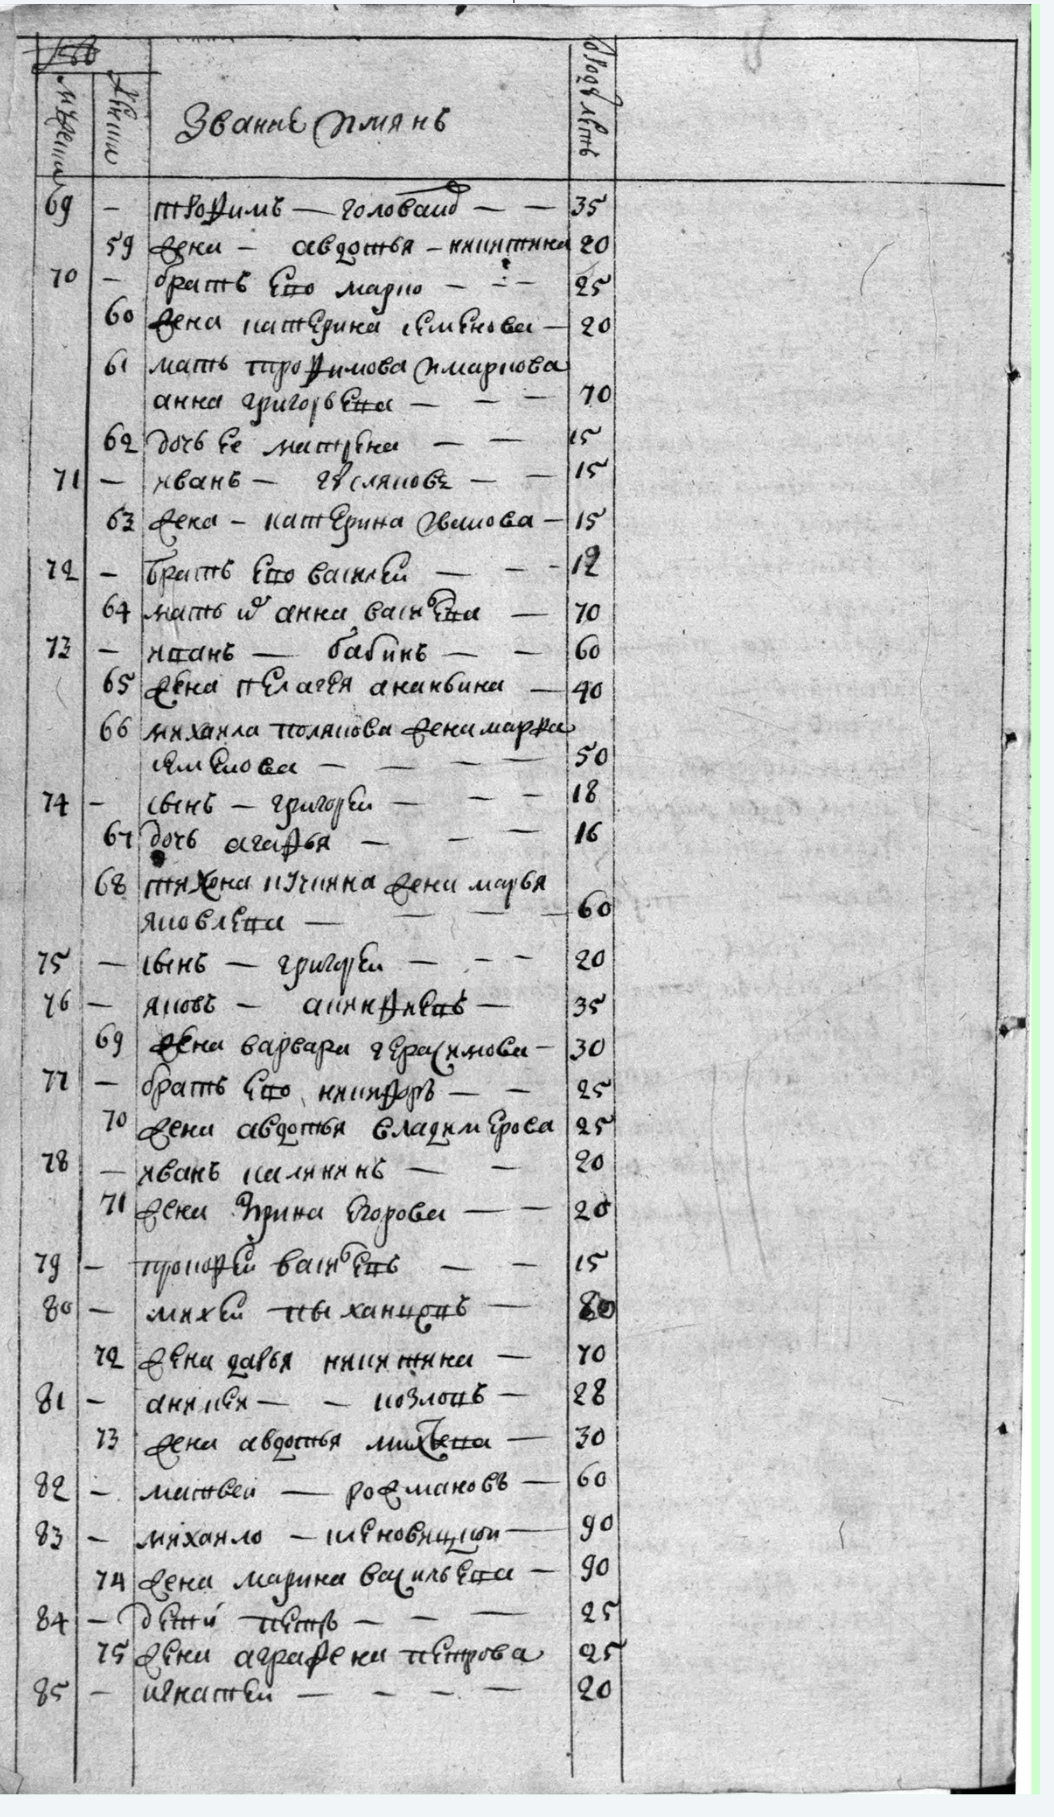 Званıе имянъ
69 — трофимъ — головач — — 35
59 жена — авдотья — никитина 20
70 — братъ ево марко — — — 25
60 жена катерина семенова — 20
61 мать трофимова имаркова
анна григорьева — — — 70
62 дочь ее матрена — — 15
71 — иванъ — — — 15
63 жена — катерина иванова — 15
72 — братъ ево василеи — — — 12
64 мать их анна васильева — 70
73 — иванъ — бабинъ — — 60
65 жена пелагея ананьина — 40
66 михаила полякова жена марфа
семенова — — — — 50
74 — сынъ — григореи — — — 18
67 дочь агафья — — — 16
68 тихона жена марья
яковлева — — — — — 60
75 — сынъ — григореи — — — 20
76 — яковъ — аникиевъ — 35
69 жена варвара герасимова — 30
77 — братъ ево никифоръ — — 25
70 жена авдотья владимерова 25
78 — иванъ калининъ — — 20
71 жена ирина егорова — — 20
79 — прокофеи васильевъ — — 15
80 — михеи — 80
72 жена дарья никитина — 70
81 — аникеи — — козловъ — 28
73 жена авдотья михеева — 30
82 — матвеи — рожмановъ — 60
83 — михаило — — 90
74 жена марина васильева — 90
84 — дети петръ — — — 25
75 жена аграфена петрова 25
85 — игнатеи — — — — 20